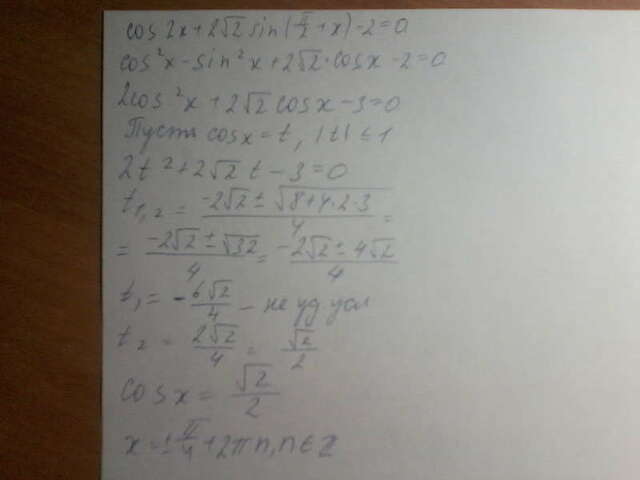 cos 2x + 2√2 sin(π/2 + x) - 2 = 0
cos²x - sin²x + 2√2·cosx - 2 = 0
2cos²x + 2√2 cosx - 3 = 0
Пусть cosx = t, |t| ≤ 1
2t² + 2√2 t - 3 = 0
t₁,₂ = (-2√2 ± √(8+4·2·3))/4 =
= (-2√2 ± √32)/4 = (-2√2 ± 4√2)/4
t₁ = -6√2/4 - не уд. усл
t₂ = 2√2/4 = √2/2
cosx = √2/2
x = ±π/4 + 2πn, n∈Z